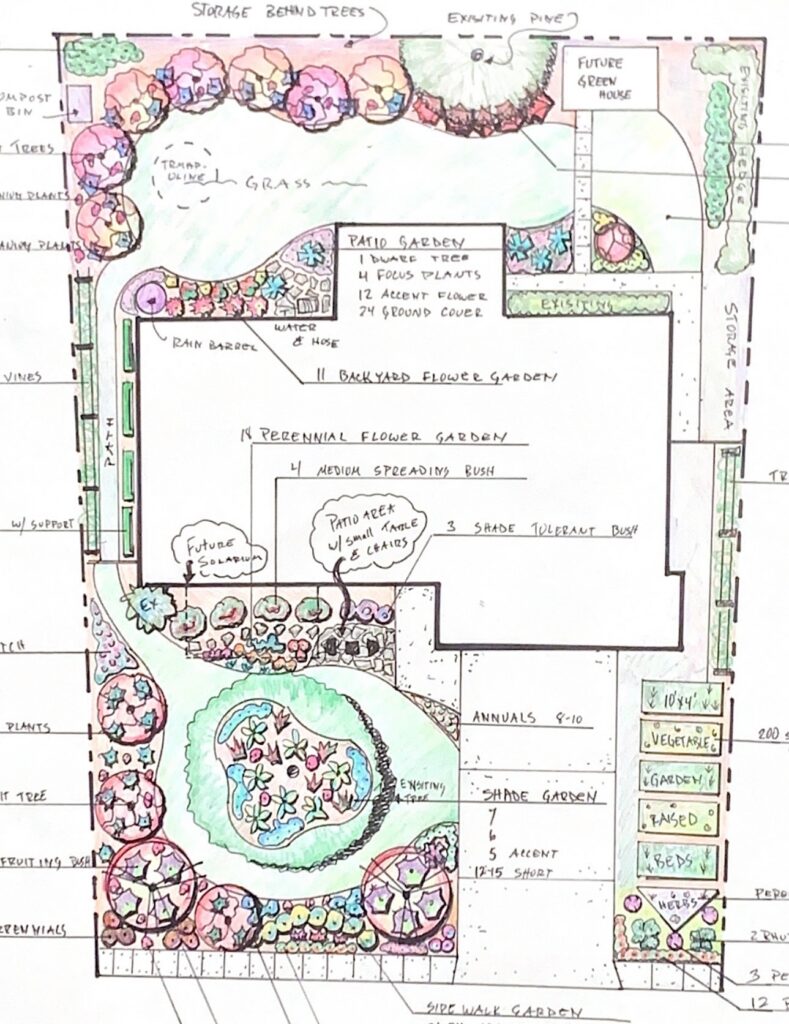 STORAGE BEHIND TREES
EXISITING PINE
FUTURE
GREEN
HOUSE
OMPOST
BIN
TREES
EXISITING HEDGE
TRMAP-
OLINE
GRASS
PLANTS
PLANTS
PATIO GARDEN
1 DWARF TREE
4 FOCUS PLANTS
12 ACCENT FLOWER
24 GROUND COVER
EXISITING
STORAGE AREA
WATER
& HOSE
RAIN BARREL
VINES
11 BACKYARD FLOWER GARDEN
PERENNIAL FLOWER GARDEN
4 MEDIUM SPREADING BUSH
TR
W/ SUPPORT
PATIO AREA
W/ SMALL TABLE
& CHAIRS
3 SHADE TOLERANT BUSH
FUTURE
SOLARIUM
EX
TCH
10'X4'
ANNUALS 8-10
PLANTS
VEGETABLE
200 S
GARDEN
EXISITING
TREE
SHADE GARDEN
IT TREE
7
6
RAISED
5 ACCENT
FRUITING BUSH
BEDS
12-15 SHORT
HERBS
PERE
RENNIALS
2 RHU
3 PE
12 P
SIDE WALK GARDEN